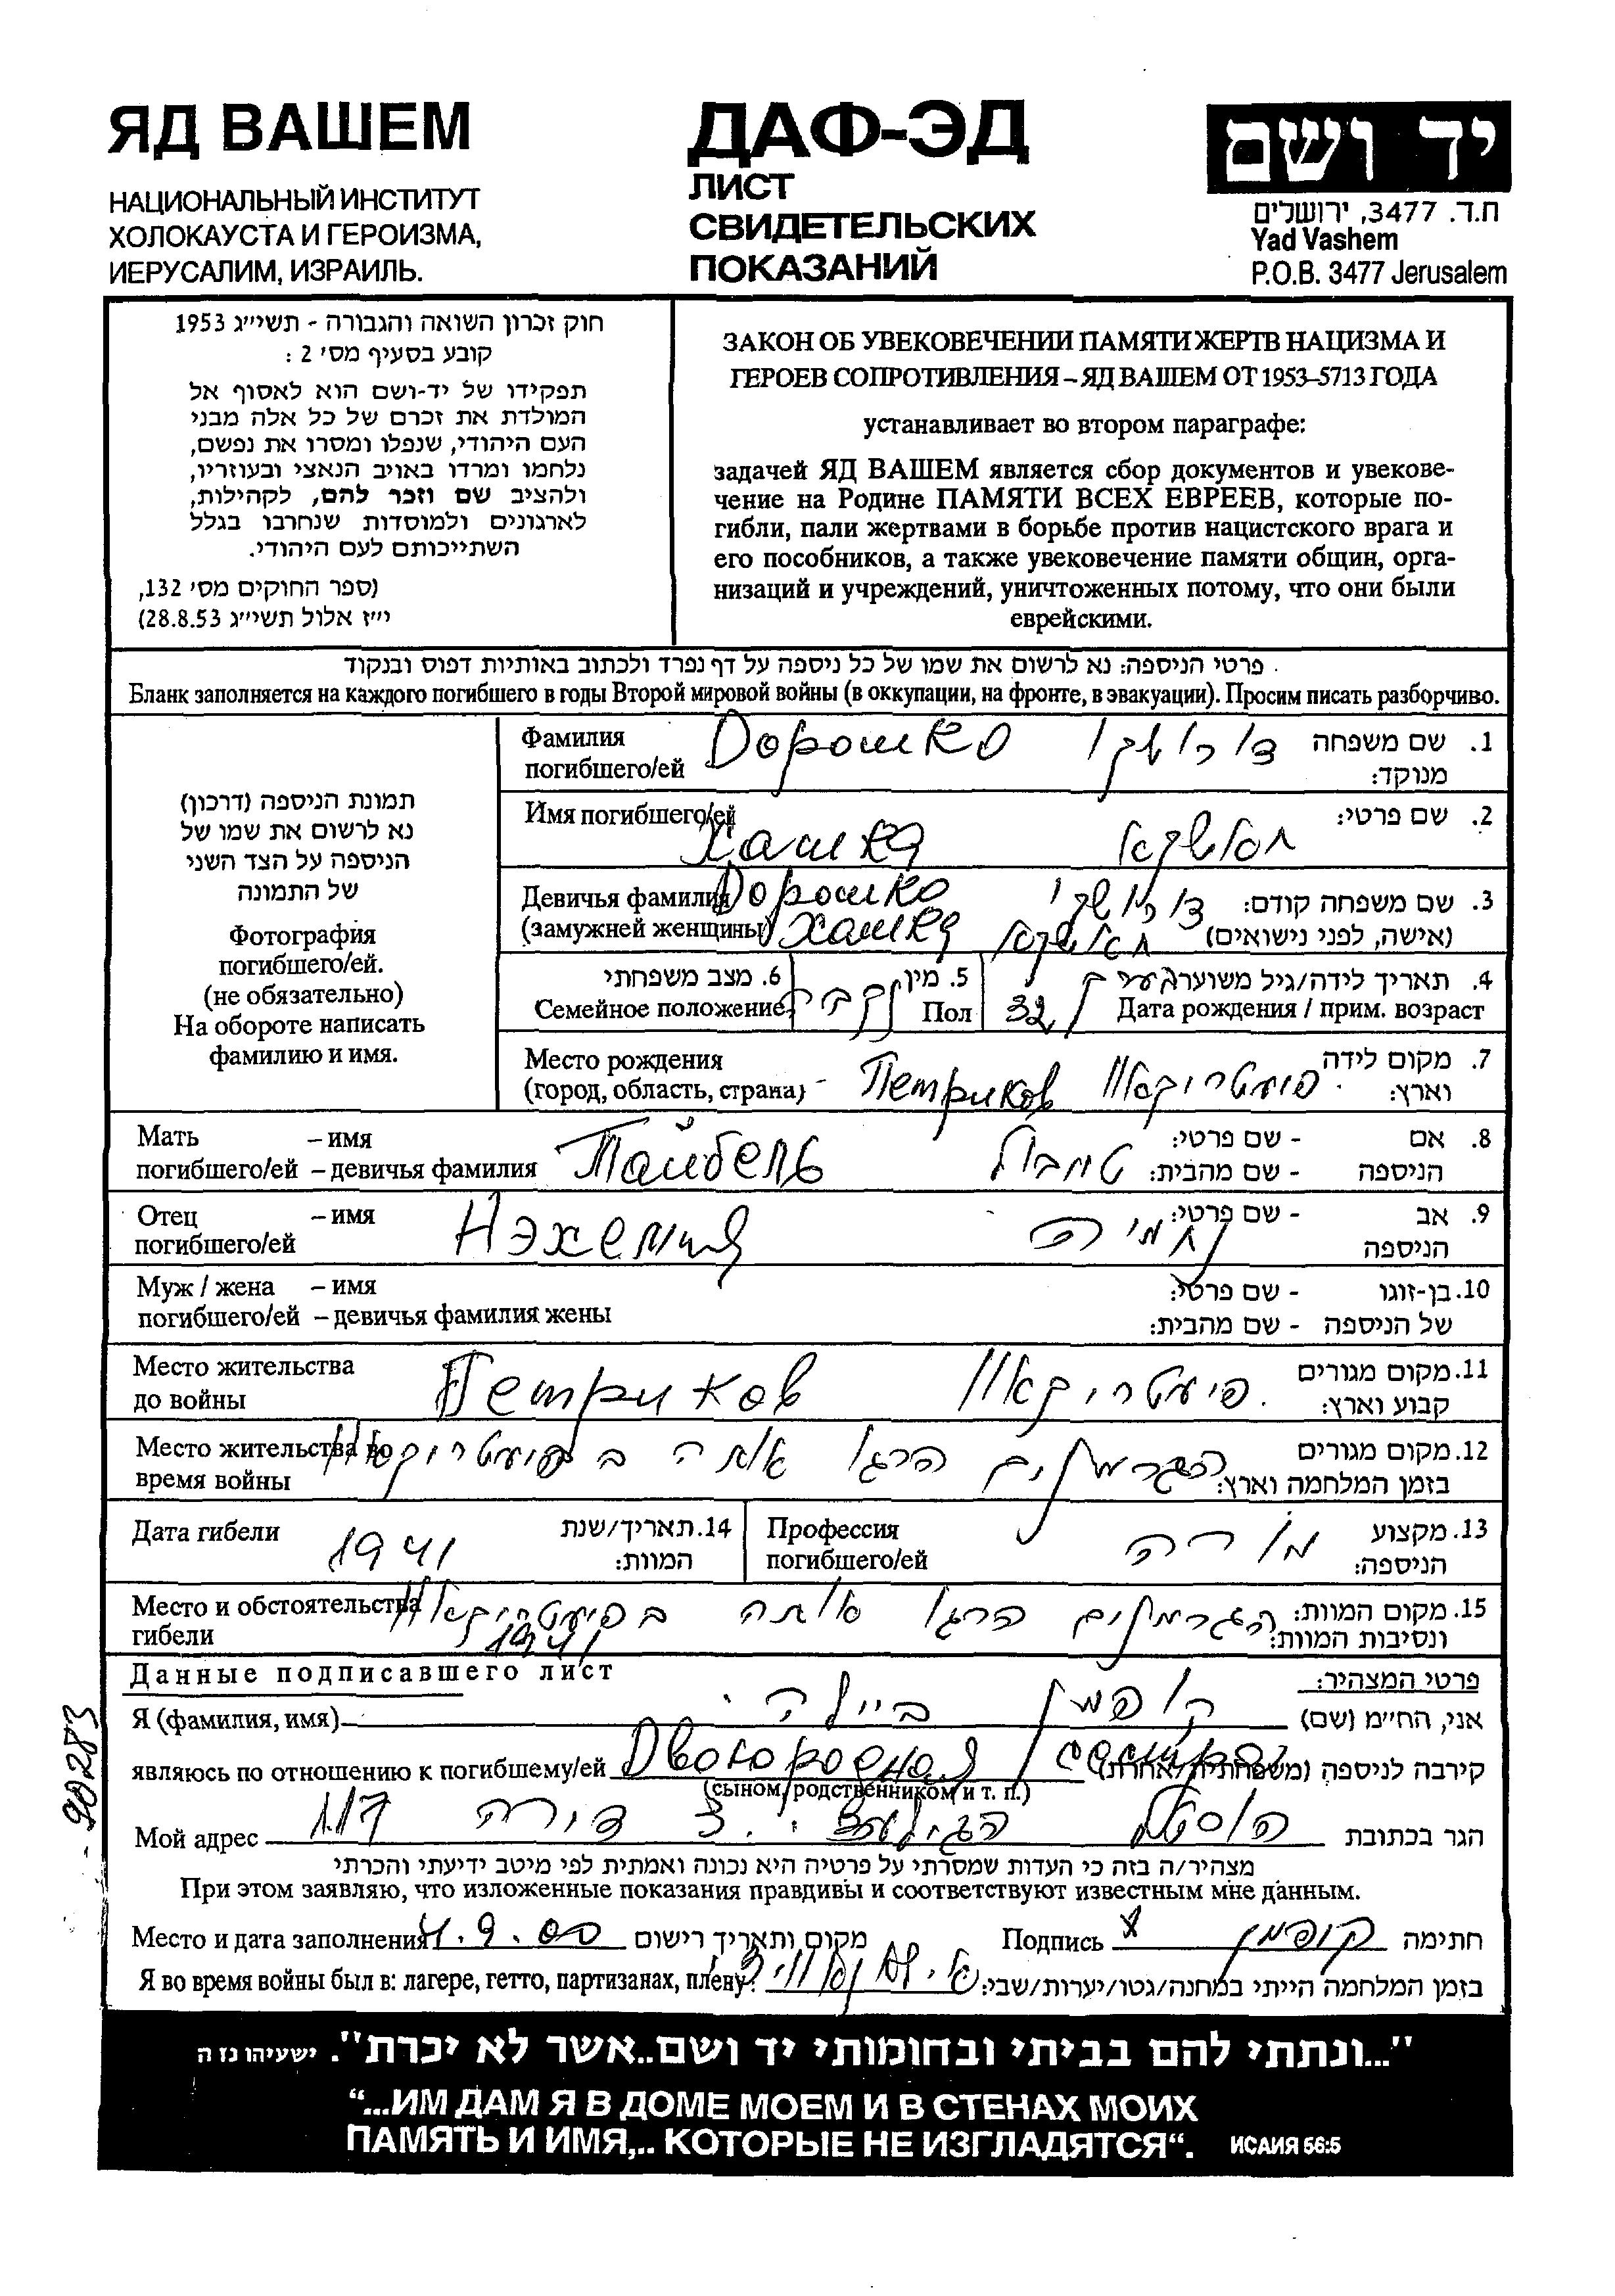 ЯД ВАШЕМ
НАЦИОНАЛЬНЫЙ ИНСТИТУТ
ХОЛОКАУСТА И ГЕРОИЗМА,
ИЕРУСАЛИМ, ИЗРАИЛЬ.
ДАФ-ЭД
ЛИСТ
СВИДЕТЕЛЬСКИХ
ПОКАЗАНИЙ
יד ושם
ת.ד. 3477, ירושלים
Yad Vashem
P.O.B. 3477 Jerusalem
חוק זכרון השואה והגבורה - תשי״ג 1953
קובע בסעיף מס׳ 2 :
תפקידו של יד-ושם הוא לאסוף אל
המולדת את זכרם של כל אלה מבני
העם היהודי, שנפלו ומסרו את נפשם,
נלחמו ומרדו באויב הנאצי ובעוזריו,
ולהציב שם וזכר להם, לקהילות,
לארגונים ולמוסדות שנחרבו בגלל
השתייכותם לעם היהודי.
(ספר החוקים מס׳ 132,
י״ז אלול תשי״ג 28.8.53)
ЗАКОН ОБ УВЕКОВЕЧЕНИИ ПАМЯТИ ЖЕРТВ НАЦИЗМА И
ГЕРОЕВ СОПРОТИВЛЕНИЯ – ЯД ВАШЕМ ОТ 1953–5713 ГОДА
устанавливает во втором параграфе:
задачей ЯД ВАШЕМ является сбор документов и увекове-
чение на Родине ПАМЯТИ ВСЕХ ЕВРЕЕВ, которые по-
гибли, пали жертвами в борьбе против нацистского врага и
его пособников, а также увековечение памяти общин, орга-
низаций и учреждений, уничтоженных потому, что они были
еврейскими.
פרטי הניספה: נא לרשום את שמו של כל ניספה על דף נפרד ולכתוב באותיות דפוס ובנקוד
Бланк заполняется на каждого погибшего в годы Второй мировой войны (в оккупации, на фронте, в эвакуации). Просим писать разборчиво.
תמונת הניספה (דרכון)
נא לרשום את שמו של
הניספה על הצד השני
של התמונה
Фотография
погибшего/ей.
(не обязательно)
На обороте написать
фамилию и имя.
Фамилия
погибшего/ей Дорошко דורושקו
1. שם משפחה
מנוקד:
Имя погибшего/ей Хашка חאשקא 2. שם פרטי:
Девичья фамилия Дорошко דורושקו 3. שם משפחה קודם:
(замужней женщины) Хашка חאשקא (אישה, לפני נישואים)
6. מצב משפחתי 5. מין 4. תאריך לידה/גיל משוער
Семейное положение Пол נקבה 32 Дата рождения / прим. возраст
Место рождения
(город, область, страна) Петриков פיעטריקאוו
7. מקום לידה
וארץ:
Мать – имя
погибшего/ей – девичья фамилия Тайбель טייבל
8. אם - שם פרטי:
הניספה - שם מהבית:
Отец – имя
погибшего/ей Нэхемия נחמיה
9. אב - שם פרטי:
הניספה
Муж / жена – имя
погибшего/ей – девичья фамилия жены
10. בן-זוגו - שם פרטי:
של הניספה - שם מהבית:
Место жительства
до войны Петриков פיעטריקאוו
11. מקום מגורים
קבוע וארץ:
Место жительства во
время войны הגרמנים הרגו אותה בפיעטריקאוו
12. מקום מגורים
בזמן המלחמה וארץ:
Дата гибели 1941 14. תאריך/שנת
המוות:
Профессия
погибшего/ей מורה
13. מקצוע
הניספה:
Место и обстоятельства
гибели הגרמנים הרגו אותה בפיעטריקאוו
1941
15. מקום המוות:
ונסיבות המוות:
Данные подписавшего лист פרטי המצהיר:
Я (фамилия, имя) קופמן ביילה אני, הח״מ (שם)
являюсь по отношению к погибшему/ей Двоюродная сестра קירבה לניספה (משפחתית/אחרת)
(сыном, родственником и т. п.)
Мой адрес הוסטל 3 דירה 117 הגר בכתובת
מצהיר/ה בזה כי העדות שמסרתי על פרטיה היא נכונה ואמתית לפי מיטב ידיעתי והכרתי
При этом заявляю, что изложенные показания правдивы и соответствуют известным мне данным.
Место и дата заполнения 4.9.00 מקום ותאריך רישום Подпись x קופמן חתימה
Я во время войны был в: лагере, гетто, партизанах, плену: בזמן המלחמה הייתי במחנה/גטו/יערות/שבי:
90283
"...ונתתי להם בביתי ובחומותי יד ושם..אשר לא יכרת". ישעיהו נז ה
“...ИМ ДАМ Я В ДОМЕ МОЕМ И В СТЕНАХ МОИХ
ПАМЯТЬ И ИМЯ,.. КОТОРЫЕ НЕ ИЗГЛАДЯТСЯ“. ИСАИЯ 56:5